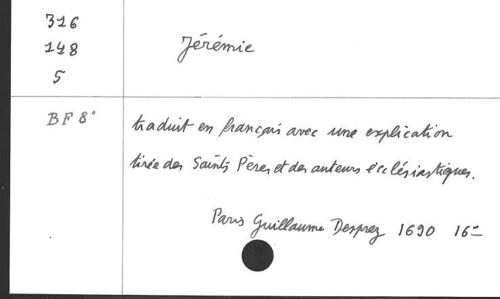 316
148
5
Jérémie
BF 8°
traduit en français avec une explication
tirée des Saints Pères et des auteurs ecclésiastiques.
Paris Guillaume Desprez 1690 16°